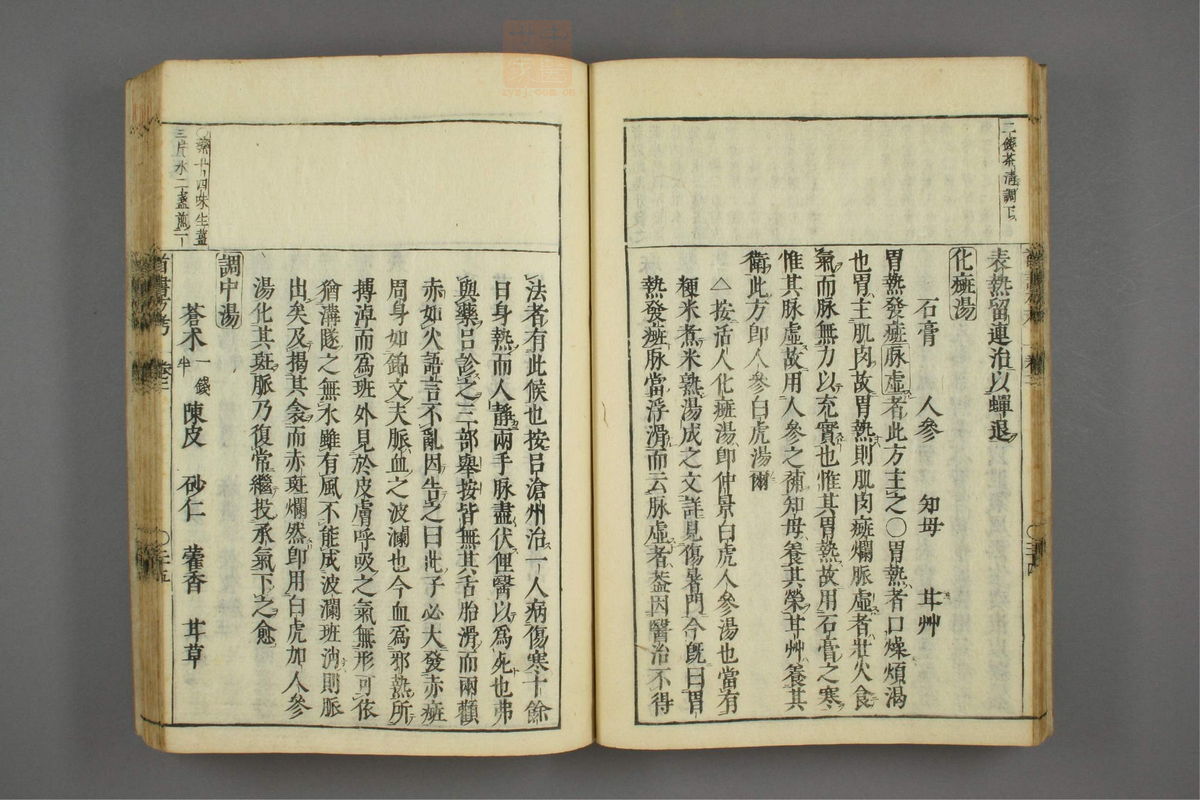 二錢茶清調下
表熱留連治以蟬退
化癍湯
石膏 人參 知母 甘艸
胃熱發癍脉虛者此方主之○胃熱者口燥煩渴
也胃主肌肉故胃熱則肌肉癍爛脈虛者壯火食
氣而脉無力以充實也惟其胃熱故用石膏之寒
惟其脉虛故用人參之補知母養其榮甘艸養其
衛此方卽人參白虎湯爾
△按活人化癍湯卽仲景白虎人參湯也當有
粳米煮米熟湯成之文詳見傷暑門今旣曰胃
熱發癍脉當浮滑而云脉虛者蓋因醫治不得
法者有此候也按呂滄州治一人病傷寒十餘
日身熱而人靜兩手脉盡伏俚醫以爲死也弗
與藥呂診之三部舉按皆無其舌胎滑而兩顴
赤如火語言不亂因告之曰此子必大發赤癍
周身如錦文夫脈血之波瀾也今血爲邪熱所
搏淖而爲班外見於皮膚呼吸之氣無形可依
猶溝隧之無水雖有風不能成波瀾班消則脈
出矣及揭其衾而赤斑爛然卽用白虎加人參
湯化其斑脈乃復常繼投承氣下之愈
○藥十四味生薑
三片水二盞煎一
調中湯
蒼朮一錢半 陳皮 砂仁 藿香 甘草
卷三